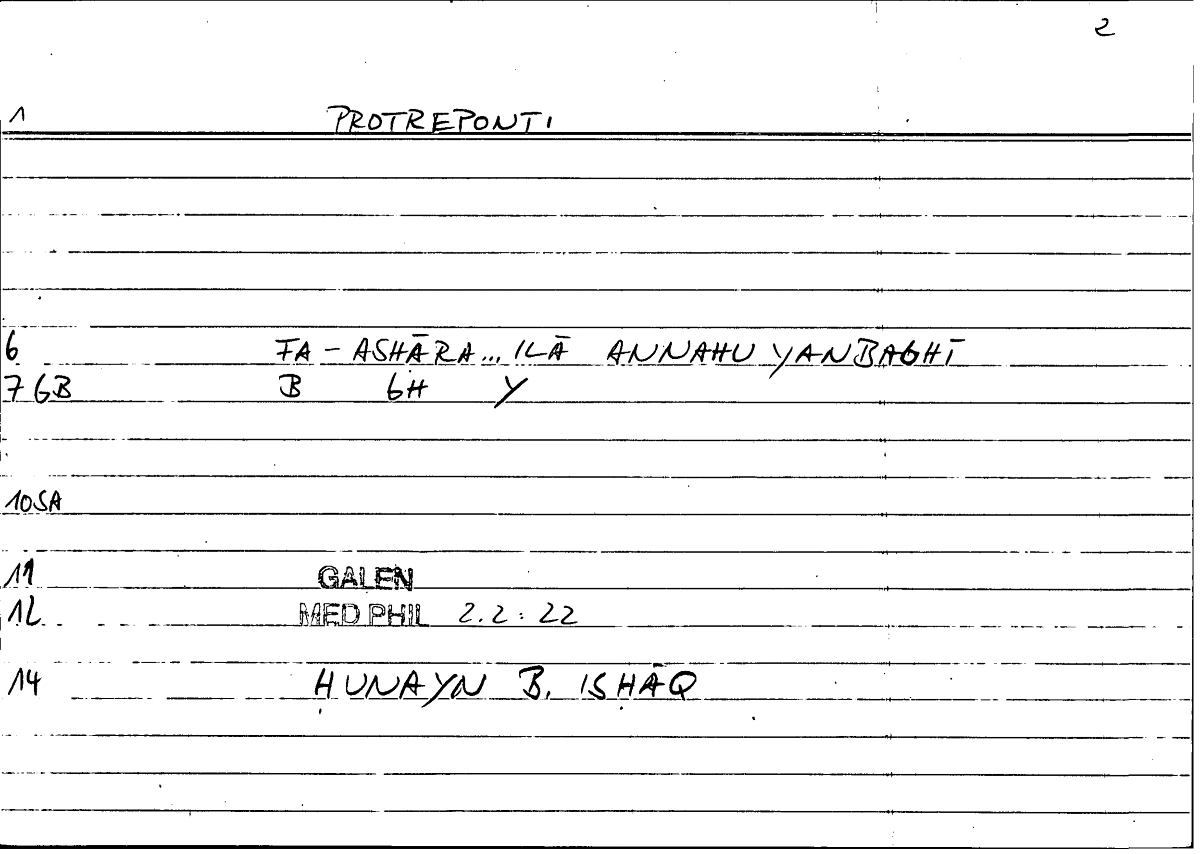 2
1 PROTREPONTI
6 FA-ASHĀRA... ILĀ ANNAHU YANBAGHĪ
7 GB B GH Y
10 SA
11 GALEN
12 MED PHIL 2.2:22
14 ḤUNAYN B. ISḤĀQ